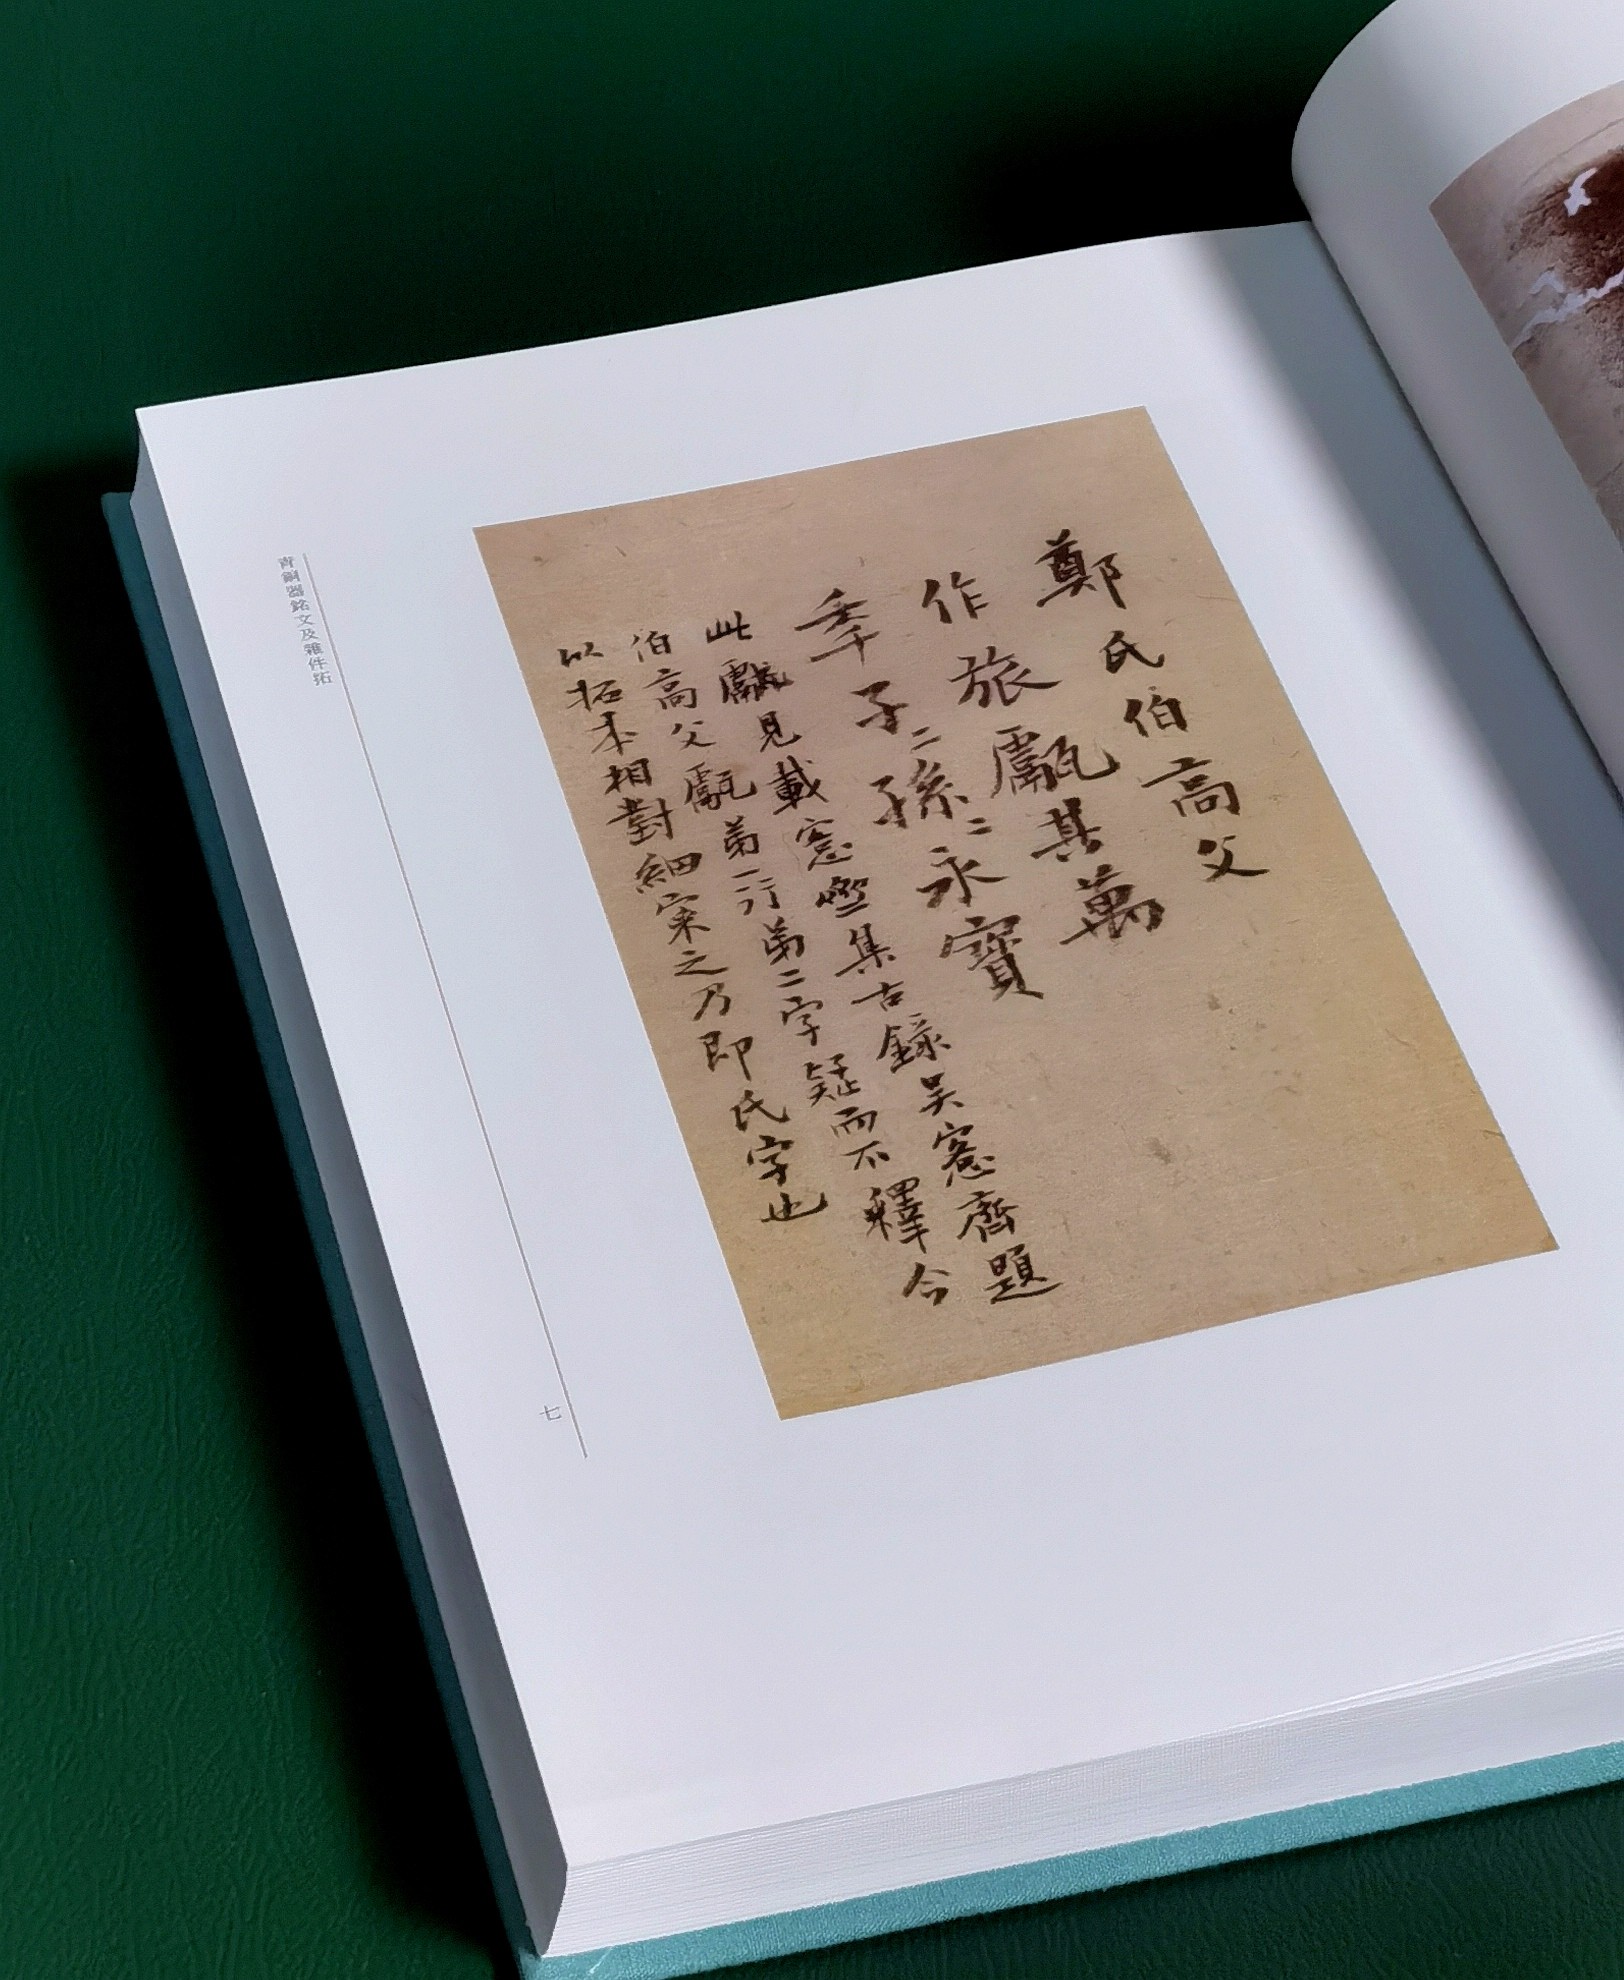 鄭氏伯高父
作旅甗其萬
季子〻孫〻永寶
此甗見載愙齋集古錄吳愙齋題
伯高父甗第一行第二字疑而不釋今
以拓本相對細案之乃即氏字也
青銅器銘文及雜件拓
七